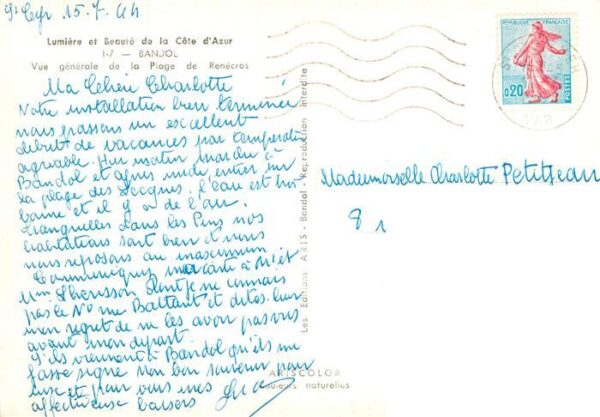 St Cyr 15.7.64
Lumière et Beauté de la Côte d'Azur
1-7 — BANDOL
Vue générale de la Plage de Renécros
Ma Chérie Charlotte
Notre installation bien terminée
nous passons un excellent
début de vacances par température
agréable. Hier matin marché à
Bandol et après midi entier sur
la plage des Lecques. l'eau est très
bonne et il y a de l'air.
Tranquilles dans les Pins nos
habitations sont bien et nous
nous reposons au maximum
Communiquez ma carte à Mr et
Mme je ne connais
pas le No rue Battant et dites leur
mon regret de ne les avoir pas vus
avant mon départ
S'ils viennent à Bandol qu'ils me
fasse signe Mon bon souvenir pour
eux et pour vous mes
affectueux baisers
Les Editions ARIS - Bandol - Reproduction interdite
ARISCOLOR
couleurs naturelles
REPUBLIQUE FRANÇAISE
0,20
POSTES
VAR
Mademoiselle Charlotte Petitjean